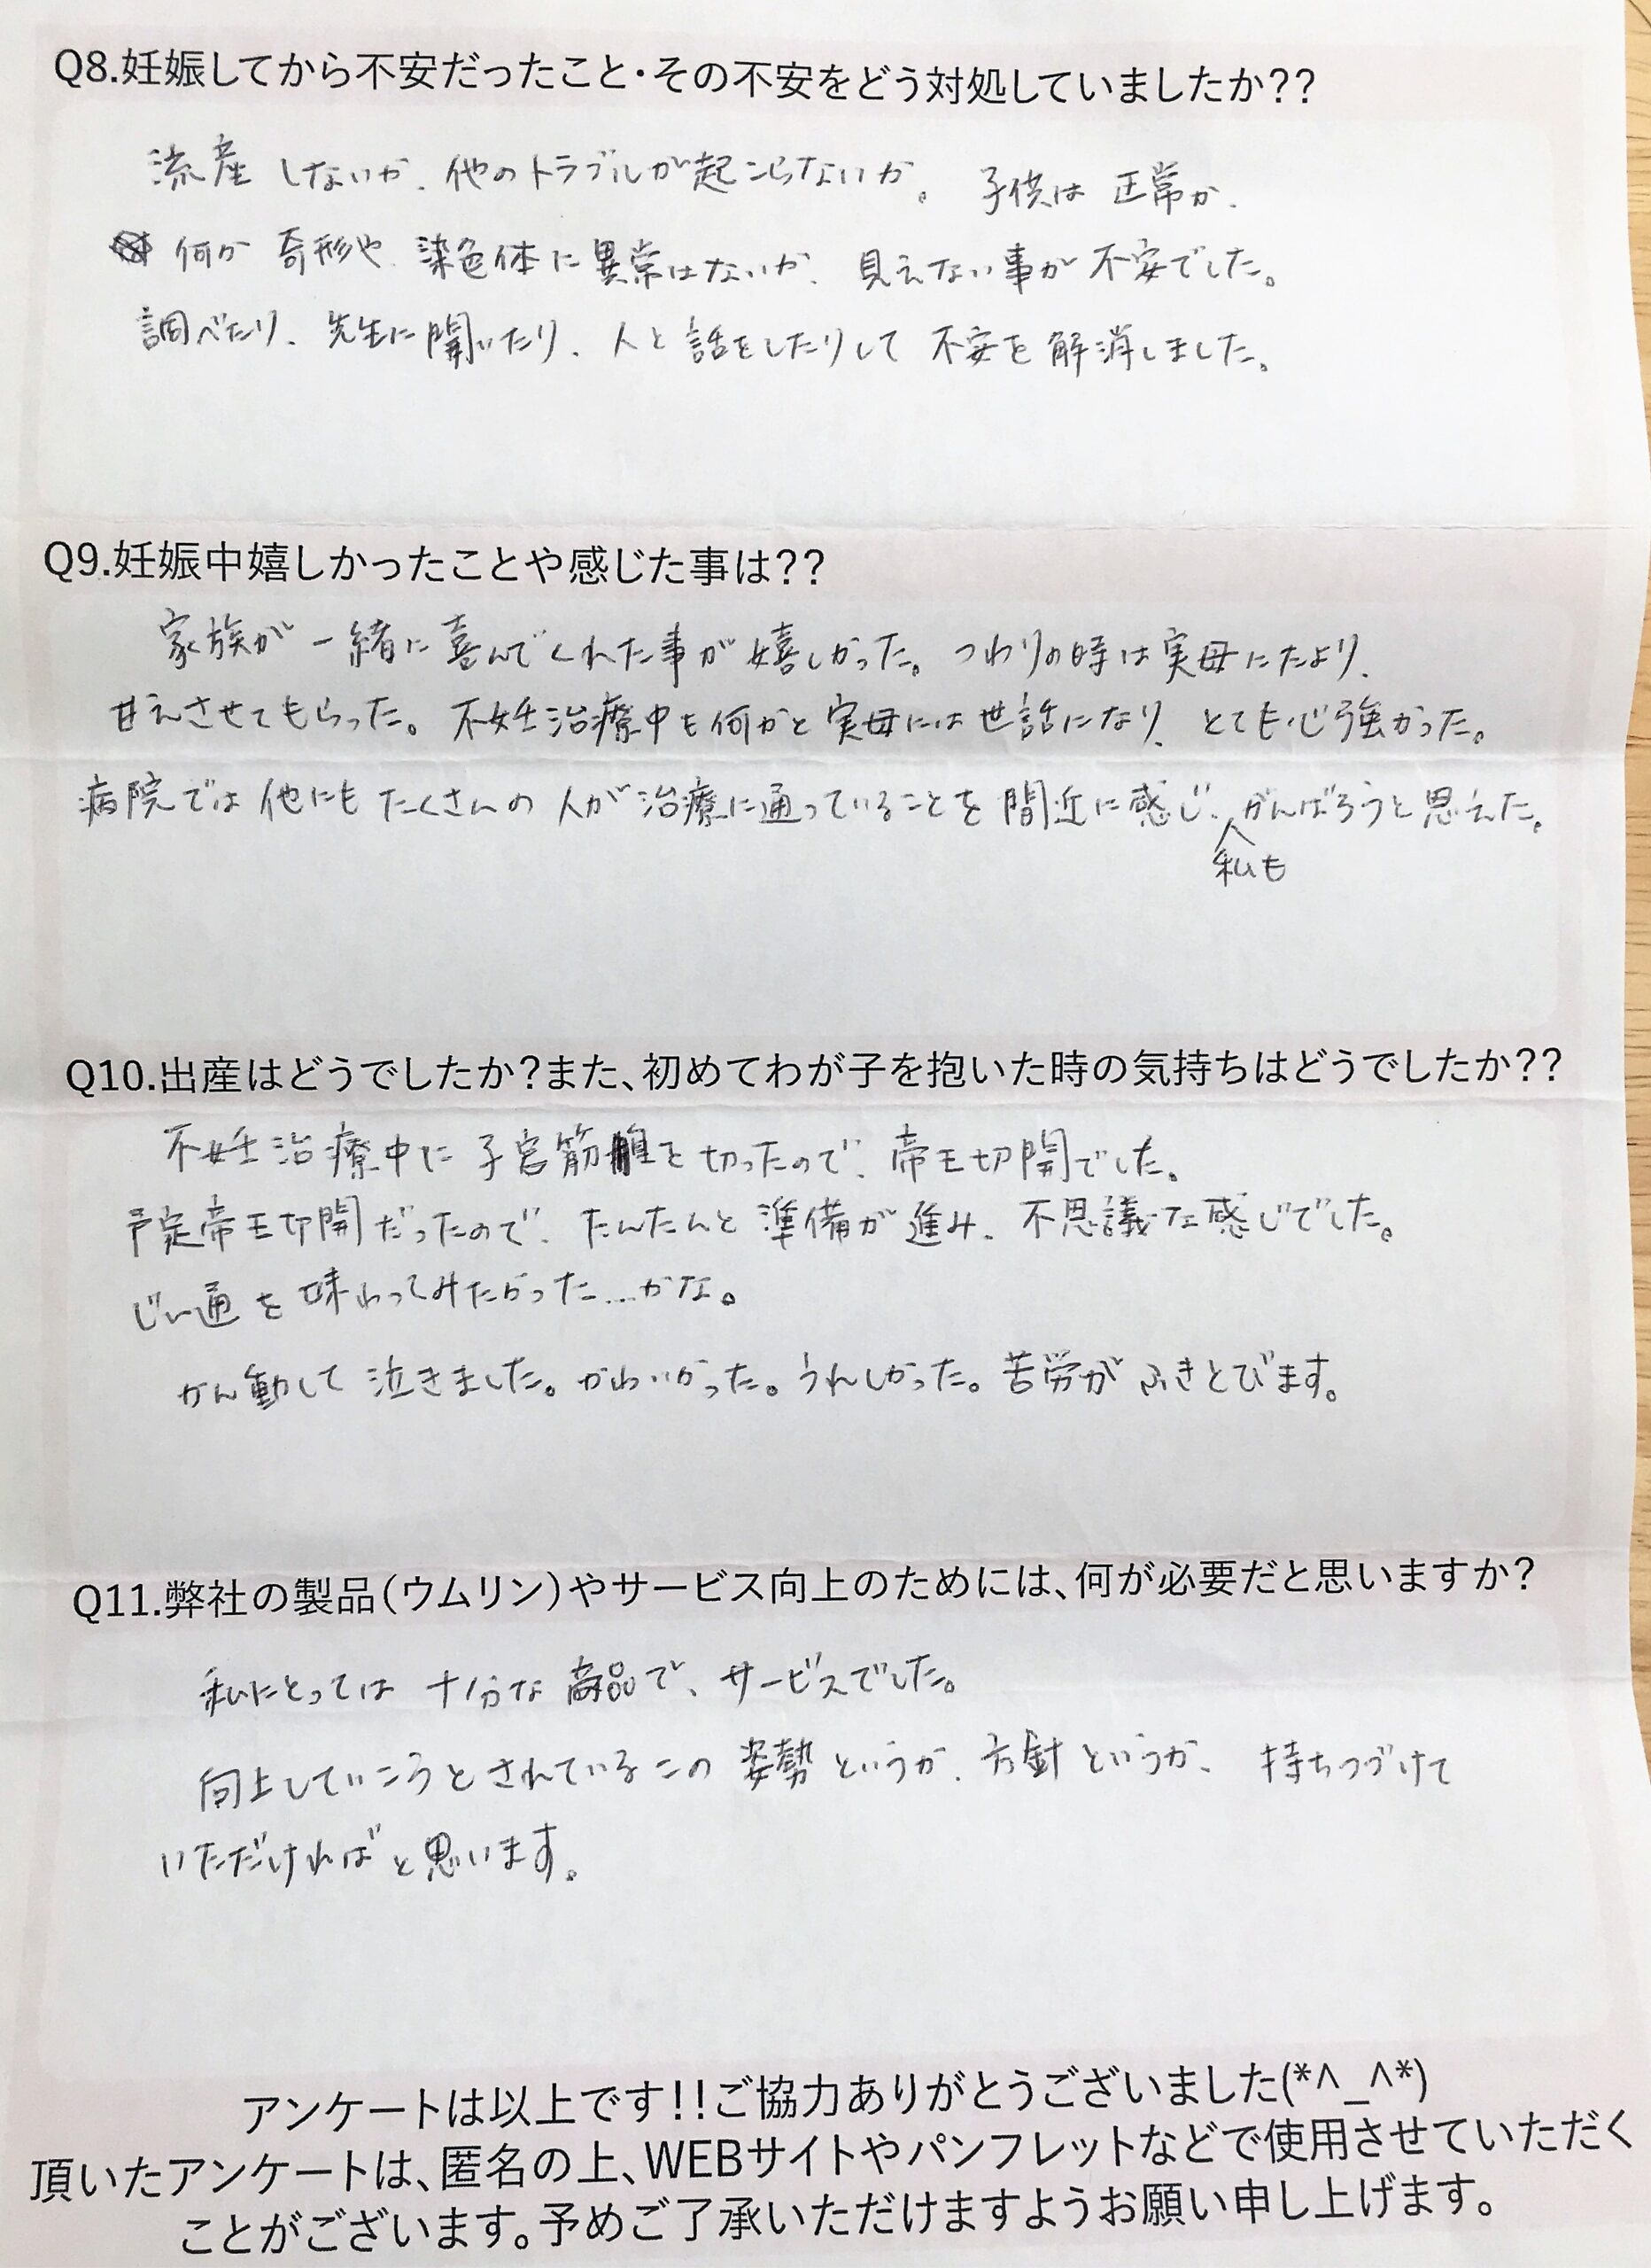 Q8.妊娠してから不安だったこと・その不安をどう対処していましたか??
流産しないか、他のトラブルが起こらないか。子供は正常か、
何か奇形や、染色体に異常はないか、見えない事が不安でした。
調べたり、先生に聞いたり、人と話をしたりして不安を解消しました。
Q9.妊娠中嬉しかったことや感じた事は??
家族が一緒に喜んでくれた事が嬉しかった。つわりの時は実母にたより、
甘えさせてもらった。不妊治療中も何かと実母には世話になり、とても心強かった。
病院では他にもたくさんの人が治療に通っていることを間近に感じ、私もがんばろうと思えた。
Q10.出産はどうでしたか?また、初めてわが子を抱いた時の気持ちはどうでしたか??
不妊治療中に子宮筋腫を切ったので、帝王切開でした。
予定帝王切開だったので、たんたんと準備が進み、不思議な感じでした。
じん通を味わってみたかった…かな。
かん動して泣きました。かわいかった。うれしかった。苦労がふきとびます。
Q11.弊社の製品(ウムリン)やサービス向上のためには、何が必要だと思いますか?
私にとっては十分な商品で、サービスでした。
向上していこうとされているこの姿勢というか、方針というか、持ちつづけて
いただければと思います。
アンケートは以上です!!ご協力ありがとうございました(*^_^*)
頂いたアンケートは、匿名の上、WEBサイトやパンフレットなどで使用させていただく
ことがございます。予めご了承いただけますようお願い申し上げます。